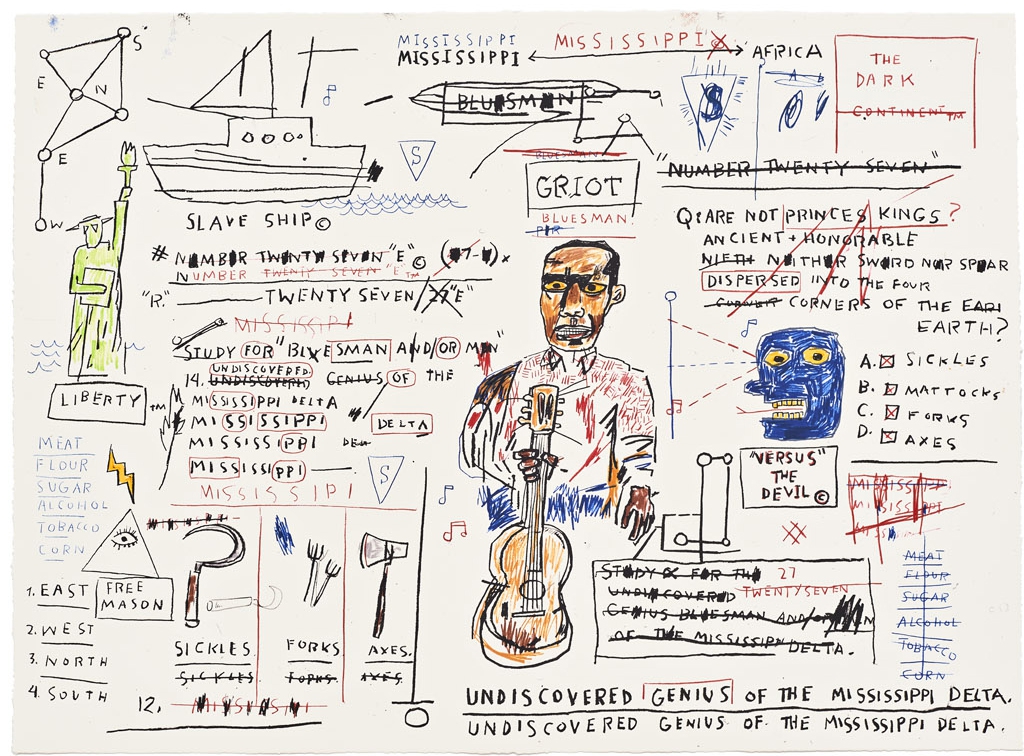 S
E
N
E
W
MISSISSIPPI
MISSISSIPPI
MISSISSIPPI
AFRICA
THE
DARK
CONTINENT™
BLUESMAN
S
A B
S
BLUESMAN
GRIOT
BLUESMAN
"NUMBER TWENTY SEVEN"
SLAVE SHIP©
# NUMBER TWENTY SEVEN "E"©
NUMBER TWENTY SEVEN "E"™
"R." TWENTY SEVEN / 27 "E"
MISSISSIPI
STUDY FOR "BLUESMAN AND/OR MEN"
UNDISCOVERED
14. UNDISCOVERD GENIUS OF THE
MISSISSIPPI DELTA
MISSISSIPPI DELTA
MISSISSIPPI
MISSISSIPPI
MISSISSIPI
S
Q: ARE NOT PRINCES KINGS?
ANCIENT + HONORABLE
NIETH NEITHER SWORD NOR SPEAR
DISPERSED INTO THE FOUR
CORNER CORNERS OF THE EAR
EARTH?
A. SICKLES
B. MATTOCKS
C. FORKS
D. AXES
LIBERTY™
MEAT
FLOUR
SUGAR
ALCOHOL
TOBACCO
CORN
"VERSUS"
THE
DEVIL©
MISSISSIPPI
MISSISSIPI
FREE
MASON
1. EAST
2. WEST
3. NORTH
4. SOUTH
SICKLES
SICKLES
FORKS
FORKS
AXES.
AXES.
12. MISSISSIPI
STUDY FOR THE 27
UNDISCOVERED TWENTYSEVEN
GENIUS BLUESMAN AND/OR MEN
OF THE MISSISSIPPI DELTA.
MEAT
FLOUR
SUGAR
ALCOHOL
TOBACCO
CORN
UNDISCOVERED GENIUS OF THE MISSISSIPPI DELTA.
UNDISCOVERED GENIUS OF THE MISSISSIPPI DELTA.